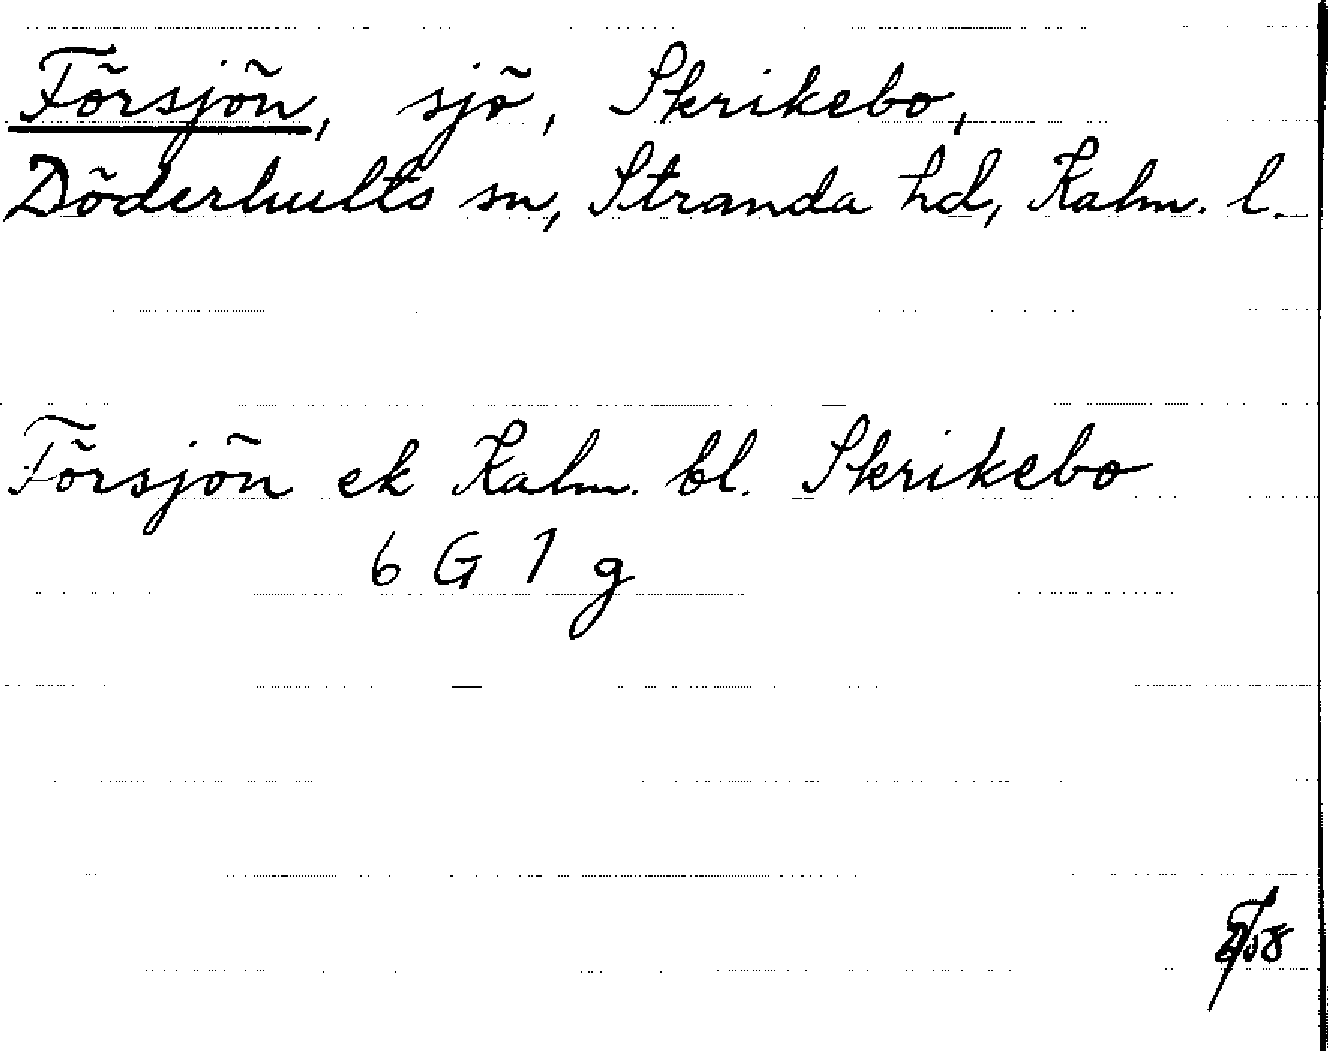 Försjön, sjö, Skrikebo,
Döderhults sn, Stranda hd, Kalm. l.
Försjön ek Kalm. bl. Skrikebo
6 G 1 g